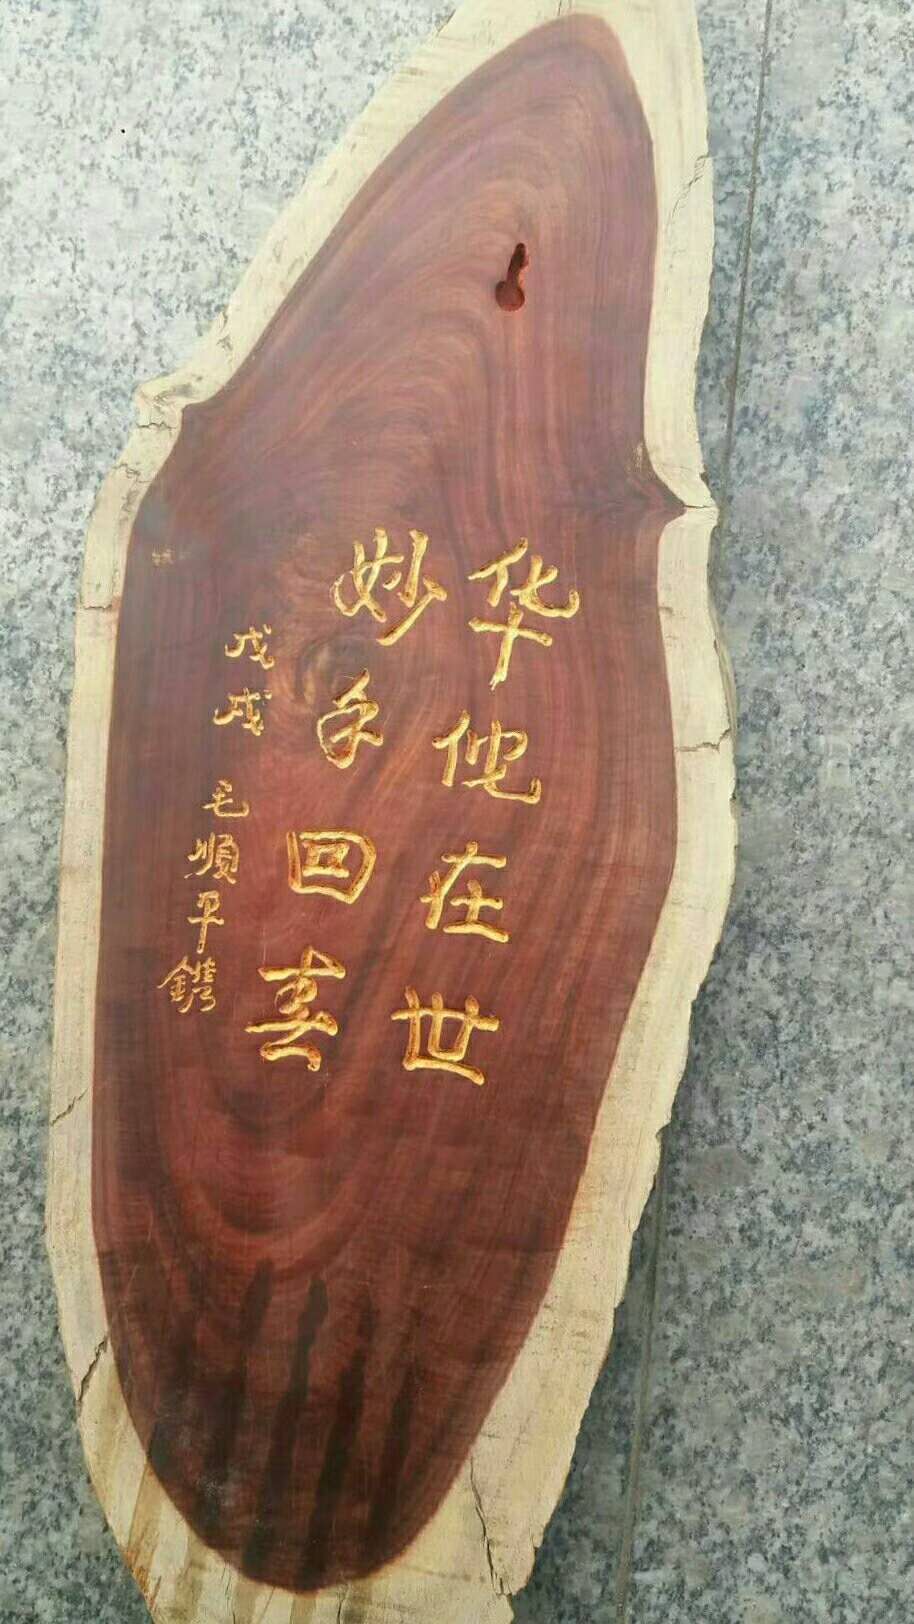 华佗在世
妙手回春
戊戌 毛順平鐫